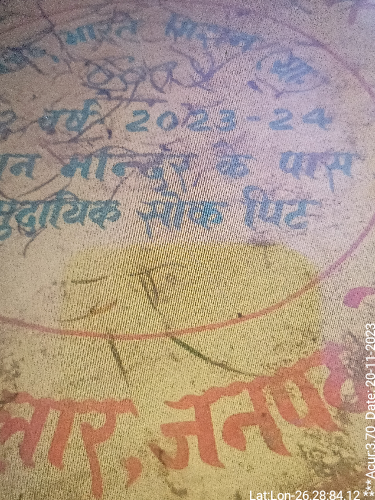 भारत मिशन (ग्रा
वर्ष 2023-24
न मन्दिर के पास
मुदायिक सोक पिट
नार, जनपद
**Acur:3.70 Date: 20-11-2023
Lat:Lon-26.28:84.12 **